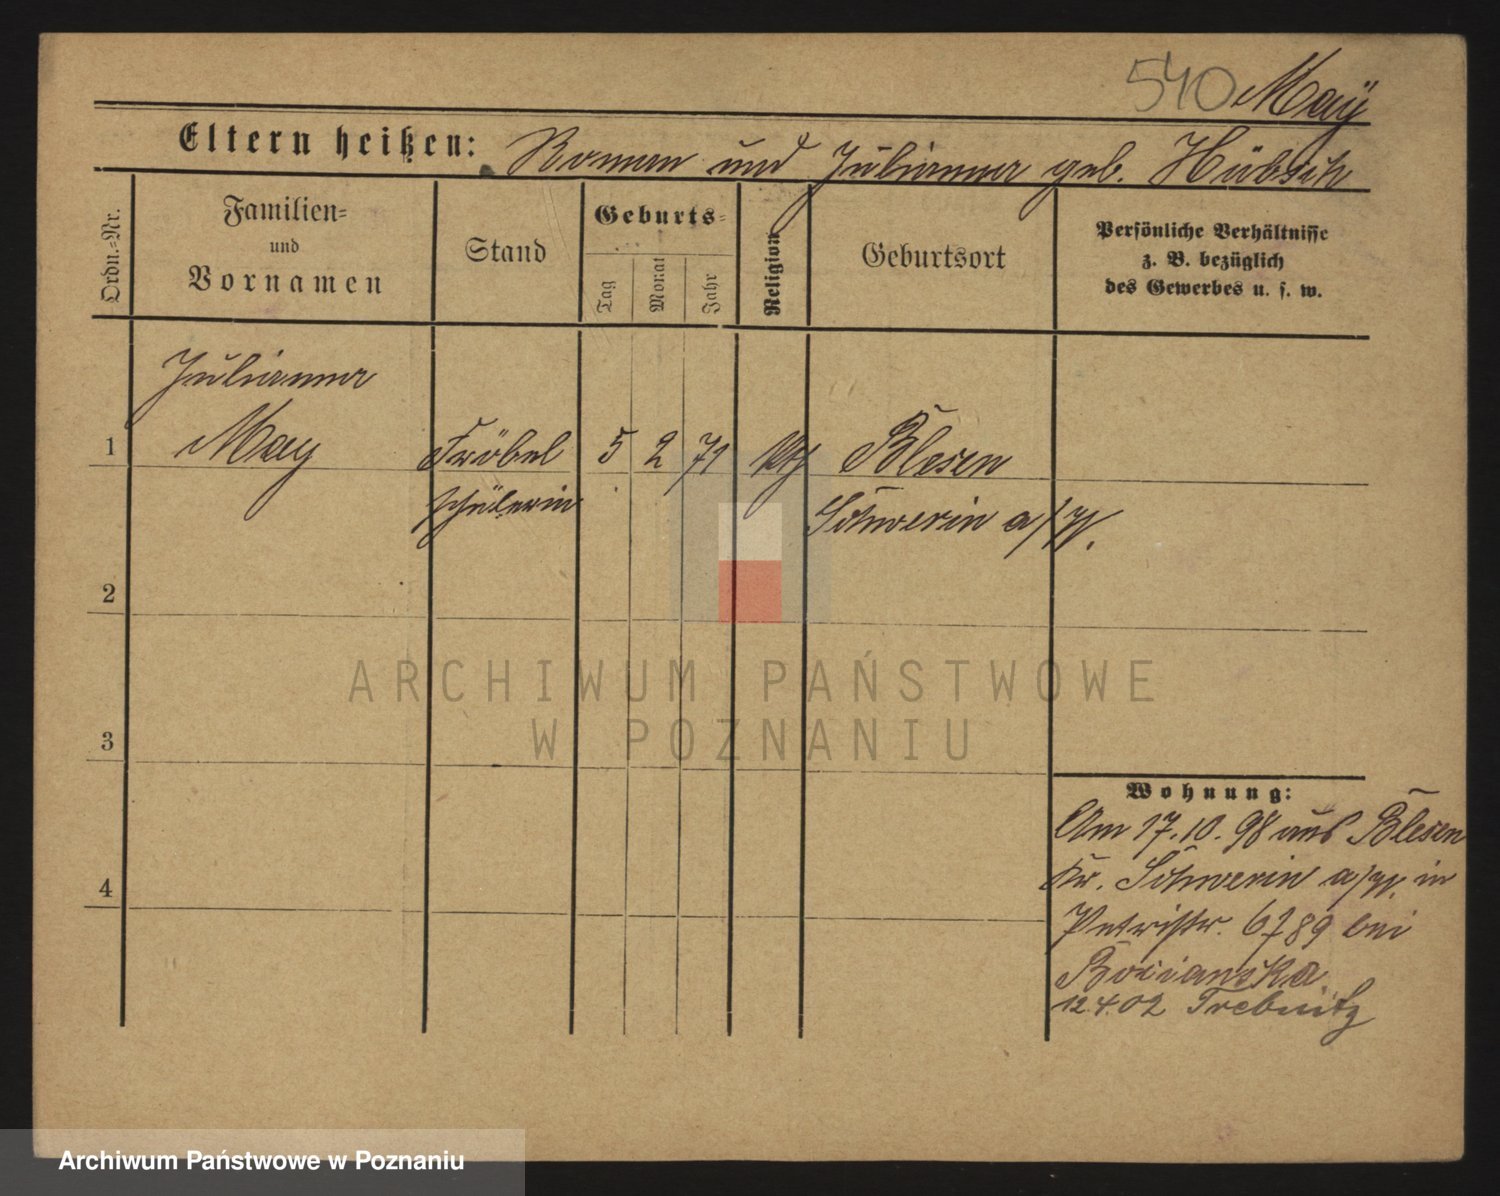 540 Maÿ
Eltern heißen: Roman und Julianna geb. Hübsch
Ordn.=Nr.
Familien=
und
Vornamen
Stand
Geburts=
Tag
Monat
Jahr
Religion
Geburtsort
Persönliche Verhältnisse
z. B. bezüglich
des Gewerbes u. s. w.
Julianna
1 May Fröbel 5 2 71 Blesen
schülerin Schwerin a/W.
2
3
4
Wohnung:
Am 17.10.98 aus Blesen
Kr. Schwerin a/W. in
Petristr. 6 bei
Bocianska
12.4.02 Trebnitz
ARCHIWUM PAŃSTWOWE
W POZNANIU
Archiwum Państwowe w Poznaniu